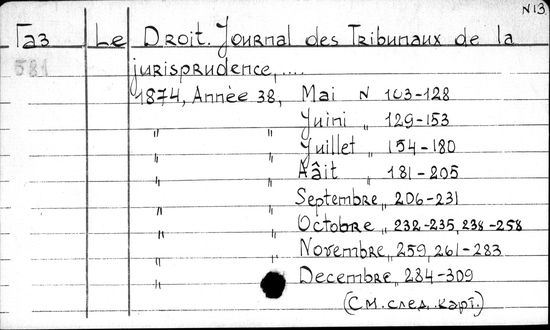 N13
Газ Le Droit. Journal des Tribunaux de la
581 jurisprudence,....
1874, Annėe 38, Mai N 103-128
" " Juini " 129-153
" " Juillet " 154-180
" " Aâit " 181-205
" " Septembre " 206-231
" " Octobre " 232-235, 238-258
" " Novembre " 259, 261-283
" " Decembre " 284-309
(См. след. карт.)